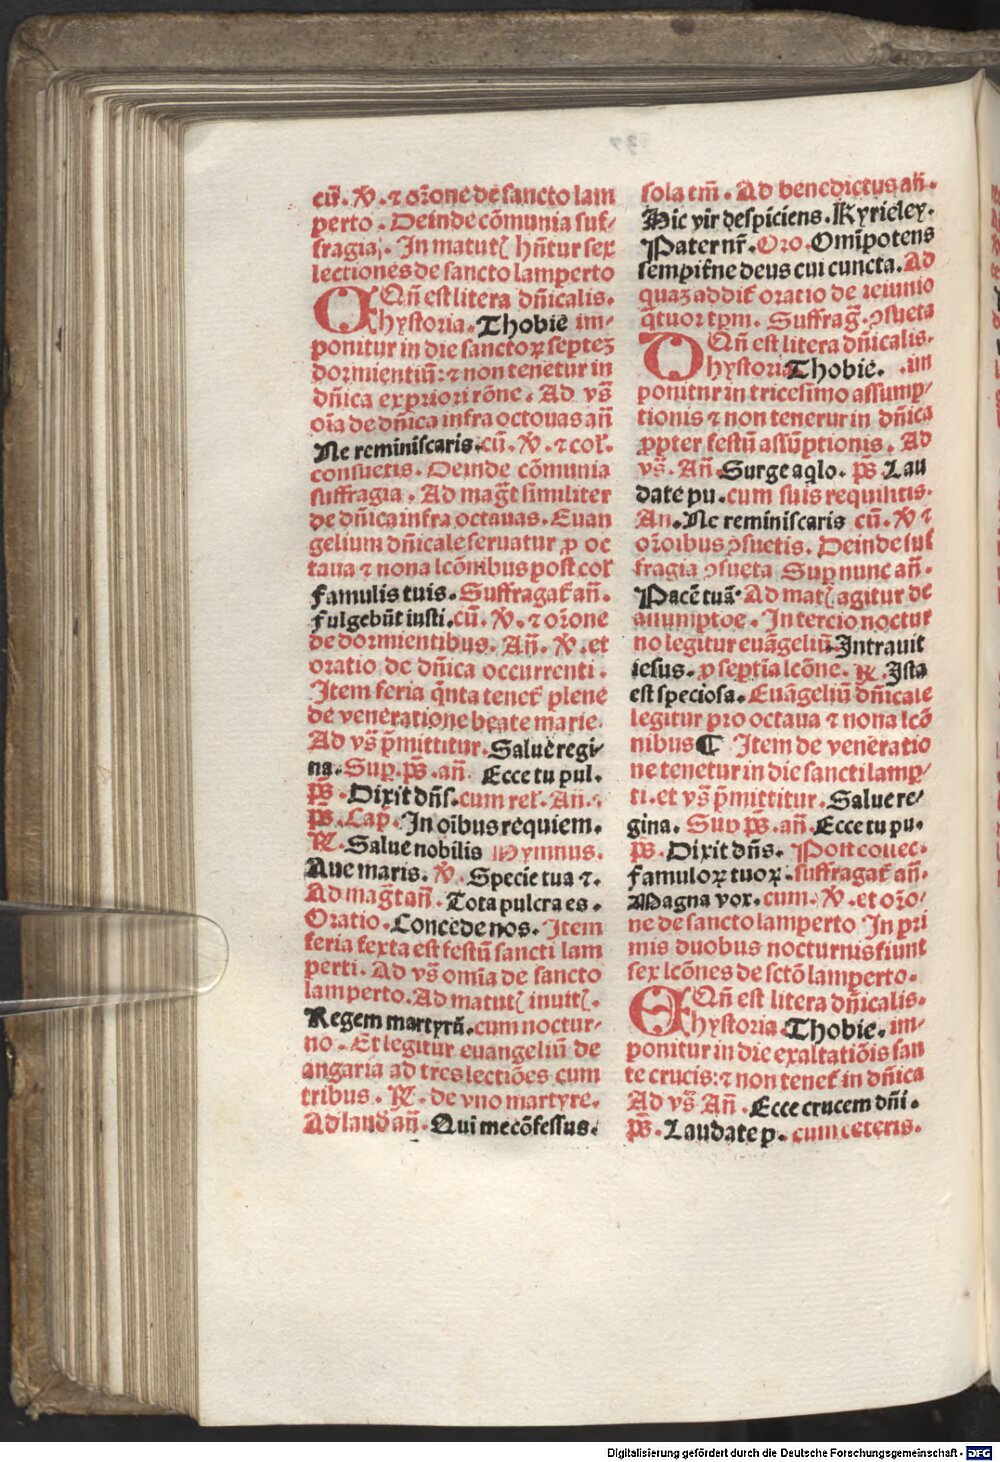 cu̅. ℣. ⁊ or̅one de sancto lam
perto. Deinde co̅munia suf⸗
fragia. In matut̉ hn̅tur sex
lectiones de sancto lamperto
QQn̅ est litera dn̅icalis.
hystoria. Thobie im⸗
ponitur in die sanctoꝝ septez
dormientiu̅: ⁊ non tenetur in
dn̅ica ex priori ro̅ne. Ad vs̅
oi̅a de dn̅ica infra octouas an̅
Ne reminiscaris. cu̅. ℣. ⁊ col̉.
consuetis. Deinde co̅munia
suffragia. Ad mag̅t similiter
de dn̅ica infra octauas. Euan
gelium dn̅icale seruatur ꝓ oc
taua ⁊ nona lco̅nibus post col̉
famulis tuis. Suffragat̉ an̅.
fulgebu̅t iusti. cu̅. ℣. ⁊ or̅one
de dormientibus. An̅. ℣. et
oratio de dn̅ica occurrenti.
Item feria q̅nta tenet̉ plene
de veneratione beate marie.
Ad vs̅ p̅mittitur. Salue regi⸗
na. Sup̲. ps̅. an̅. Ecce tu pul.
ps̅. Dixit dn̅s. cum rel̉. An̅.
ps̅. Cap̅. In oi̅bus requiem.
℟. Salue nobilis Hymnus.
Aue maris. ℣. Specie tua ⁊.
Ad mag̅t an̅. Tota pulcra es.
Oratio. Concede nos. Item
feria sexta est festu̅ sancti lam
perti. Ad vs̅ omi̅a de sancto
lamperto. Ad matut̉ inuit̉.
Regem martyru̅. cum noctur⸗
no. Et legitur euangeliu̅ de
angaria ad tres lectio̅es cum
tribus. ℟. de vno martyre.
Ad laud̅ an̅. Qui me co̅fessus.
sola tm̅. Ad benedictus an̅.
Hic vir despiciens. Kyrieley.
Pater nr̅. Oro. Omi̅potens
sempit̉ne deus cui cuncta. Ad
quaz addit̉ oratio de ieiunio
q̅tuor tp̅m. Suffrag̅. ꝯsueta
QQn̅ est litera dn̅icalis.
hystoria Thobie. im
ponitur in tricesimo assump⸗
tionis ⁊ non tenetur in dn̅ica
ꝓpter festu̅ assu̅ptionis. Ad
vs̅. An̅. Surge aqlo. ps̅. Lau
date pu. cum suis requisitis.
An. Ne reminiscaris cu̅. ℣ ⁊
or̅oibus ꝯsuetis. Deinde suf
fragia ꝯsueta Sup̲ nunc an̅.
Pace̅ tua̅. Ad mat̉ agitur de
assumptoe. In tercio noctur
no legitur eua̅geliu̅. Intrauit
iesus. ꝓ septi̅a lco̅ne. ℟. Ista
est speciosa. Eua̅geliu̅ dn̅icale
legitur pro octaua ⁊ nona lco̅
nibus ¶ Item de veneratio
ne tenetur in die sancti lamp̲⸗
ti. et vs̅ p̅mittitur. Salue re⸗
gina. Sup̲ ps̅. an̅. Ecce tu pu.
ps̅. Dixit dn̅s. Post couec.
famuloꝝ tuoꝝ. suffragat̉ an̅.
Magna vox. cum. ℣. et or̅o⸗
ne de sancto lamperto In pri
mis duobus nocturnis fiunt
sex lco̅nes de scto̅ lamperto.
QQn̅ est litera dn̅icalis.
hystoria Thobie. im⸗
ponitur in die exaltatio̅is san
te crucis: ⁊ non tenet̉ in dn̅ica
Ad vs̅ An̅. Ecce crucem dn̅i.
ps̅. Laudate p. cum ceteris.
Digitalisierung gefördert durch die Deutsche Forschungsgemeinschaft - DFG